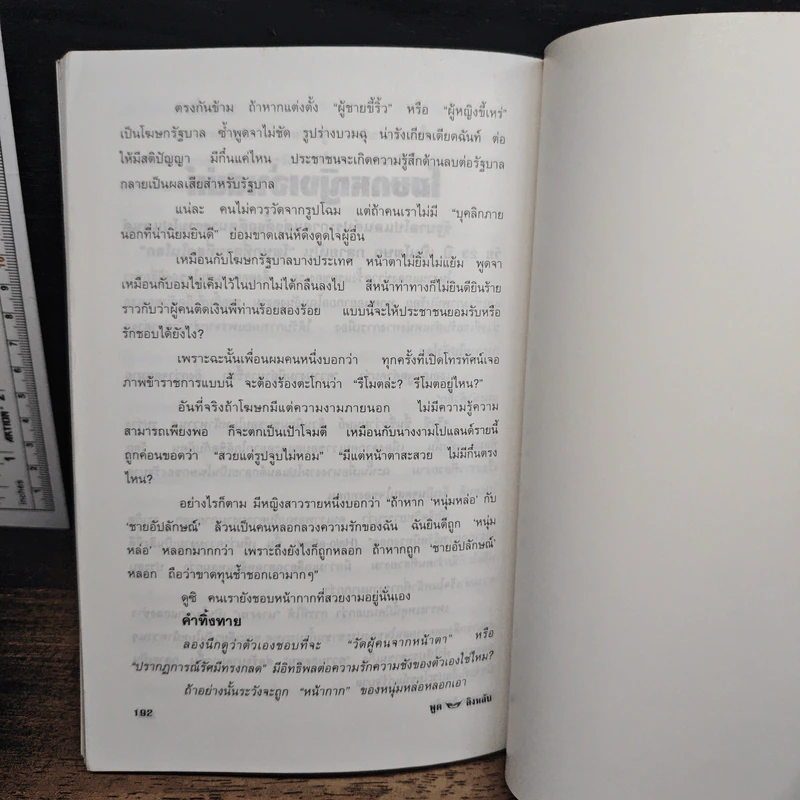 ตรงกันข้าม ถ้าหากแต่งตั้ง "ผู้ชายขี้ริ้ว" หรือ "ผู้หญิงขี้เหร่"
เป็นโฆษกรัฐบาล ซ้ำพูดจาไม่ชัด รูปร่างบวมฉุ น่ารังเกียจเดียดฉันท์ ต่อ
ให้มีสติปัญญา มีกึ๋นแค่ไหน ประชาชนจะเกิดความรู้สึกด้านลบต่อรัฐบาล
กลายเป็นผลเสียสำหรับรัฐบาล
แน่ละ คนไม่ควรวัดจากรูปโฉม แต่ถ้าคนเราไม่มี "บุคลิกภาย
นอกที่น่านิยมยินดี" ย่อมขาดเสน่ห์ดึงดูดใจผู้อื่น
เหมือนกับโฆษกรัฐบาลบางประเทศ หน้าตาไม่ยิ้มไม่แย้ม พูดจา
เหมือนกับอมไข่เค็มไว้ในปากไม่ได้กลืนลงไป สีหน้าท่าทางก็ไม่ยินดียินร้าย
ราวกับว่าผู้คนติดเงินพี่ท่านร้อยสองร้อย แบบนี้จะให้ประชาชนยอมรับหรือ
รักชอบได้ยังไง?
เพราะฉะนั้นเพื่อนผมคนหนึ่งบอกว่า ทุกครั้งที่เปิดโทรทัศน์เจอ
ภาพข้าราชการแบบนี้ จะต้องร้องตะโกนว่า "รีโมตล่ะ? รีโมตอยู่ไหน?"
อันที่จริงถ้าโฆษกมีแต่ความงามภายนอก ไม่มีความรู้ความ
สามารถเพียงพอ ก็จะตกเป็นเป้าโจมตี เหมือนกับนางงามโปแลนด์รายนี้
ถูกค่อนขอดว่า "สวยแต่รูปจูบไม่หอม" "มีแต่หน้าตาสะสวย ไม่มีกึ๋นตรง
ไหน?
อย่างไรก็ตาม มีหญิงสาวรายหนึ่งบอกว่า "ถ้าหาก 'หนุ่มหล่อ' กับ
'ชายอัปลักษณ์' ล้วนเป็นคนหลอกลวงความรักของฉัน ฉันยินดีถูก 'หนุ่ม
หล่อ' หลอกมากกว่า เพราะถึงยังไงก็ถูกหลอก ถ้าหากถูก 'ชายอัปลักษณ์'
หลอก ถือว่าขาดทุนช้ำชอกเอามากๆ"
ดูซิ คนเรายังชอบหน้ากากที่สวยงามอยู่นั่นเอง
คำทิ้งทาย
ลองนึกดูว่าตัวเองชอบที่จะ "วัดผู้คนจากหน้าตา" หรือ
"ปรากฏการณ์รัศมีทรงกลด" มีอิทธิพลต่อความรักความชังของตัวเองใช่ไหม?
ถ้าอย่างนั้นระวังจะถูก "หน้ากาก" ของหนุ่มหล่อหลอกเอา
192
พูด ลิงหลับ